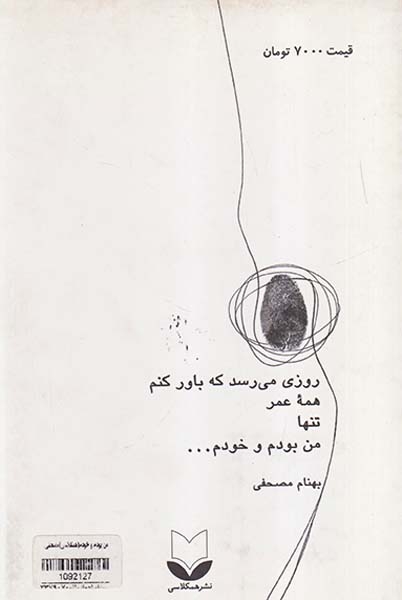 قیمت ۷۰۰۰ تومان
روزی می‌رسد که باور کنم
همهٔ عمر
تنها
من بودم و خودم...
بهنام مصحفی
نشر همکلاسی
من بودم و خودم
1092127